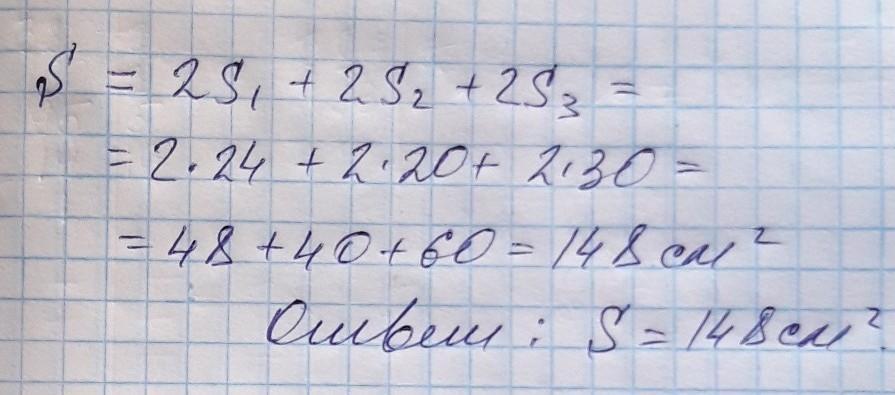 S = 2S₁ + 2S₂ + 2S₃ =
= 2·24 + 2·20 + 2·30 =
= 48 + 40 + 60 = 148 см²
Ответ: S = 148 см².